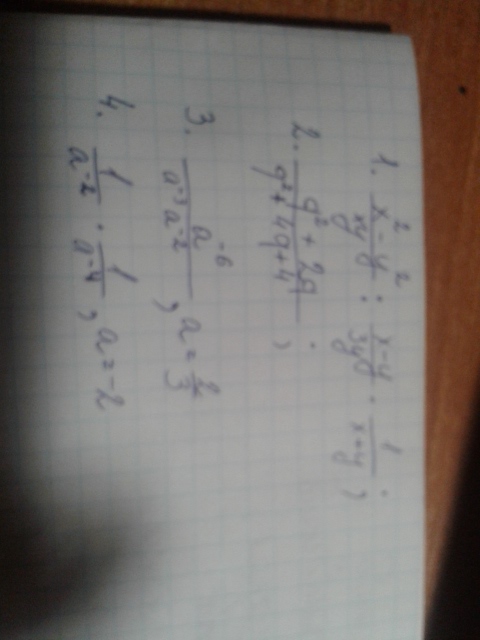 1. (x² - y²)/(xy) : (x-y)/(3y) · 1/(x+y) ;
2. (q² + 2q)/(q² + 4q + 4) ;
3. a⁻⁶/(a⁻³a⁻²) , a = 2/3
4. 1/a⁻² · 1/a⁻⁴ , a = -2